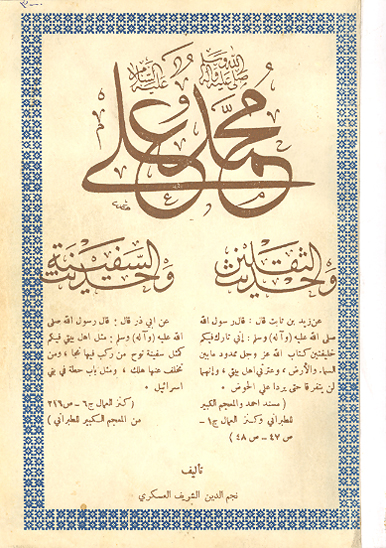 محمد وعلي
صلى الله عليه وآله وسلم
عليه السلام
وحديث الثقلين
وحديث السفينة
عن زيد بن ثابت قال : قال رسول الله
صلى الله عليه (وآله) وسلم : إني تارك فيكم
خليفتين كتاب الله عز وجل ممدود مابين
السماء والأرض ، وعترتي أهل بيتي ، وإنهما
لن يتفرقا حتى يردا علي الحوض .
( مسند احمد والمعجم الكبير
للطبراني وكنز العمال ج١ -
ص ٤٧ -- ص ٤٨ )
عن ابي ذر قال : قال رسول الله صلى
الله عليه (وآله) وسلم : مثل اهل بيتي فيكم
كمثل سفينة نوح من ركب فيها نجا ، ومن
تخلف عنها هلك ، ومثل باب حطة في بني
اسرائيل .
( كنز العمال ج٦ - ص٢١٦
من المعجم الكبير للطبراني )
تأليف
نجم الدين الشريف العسكري